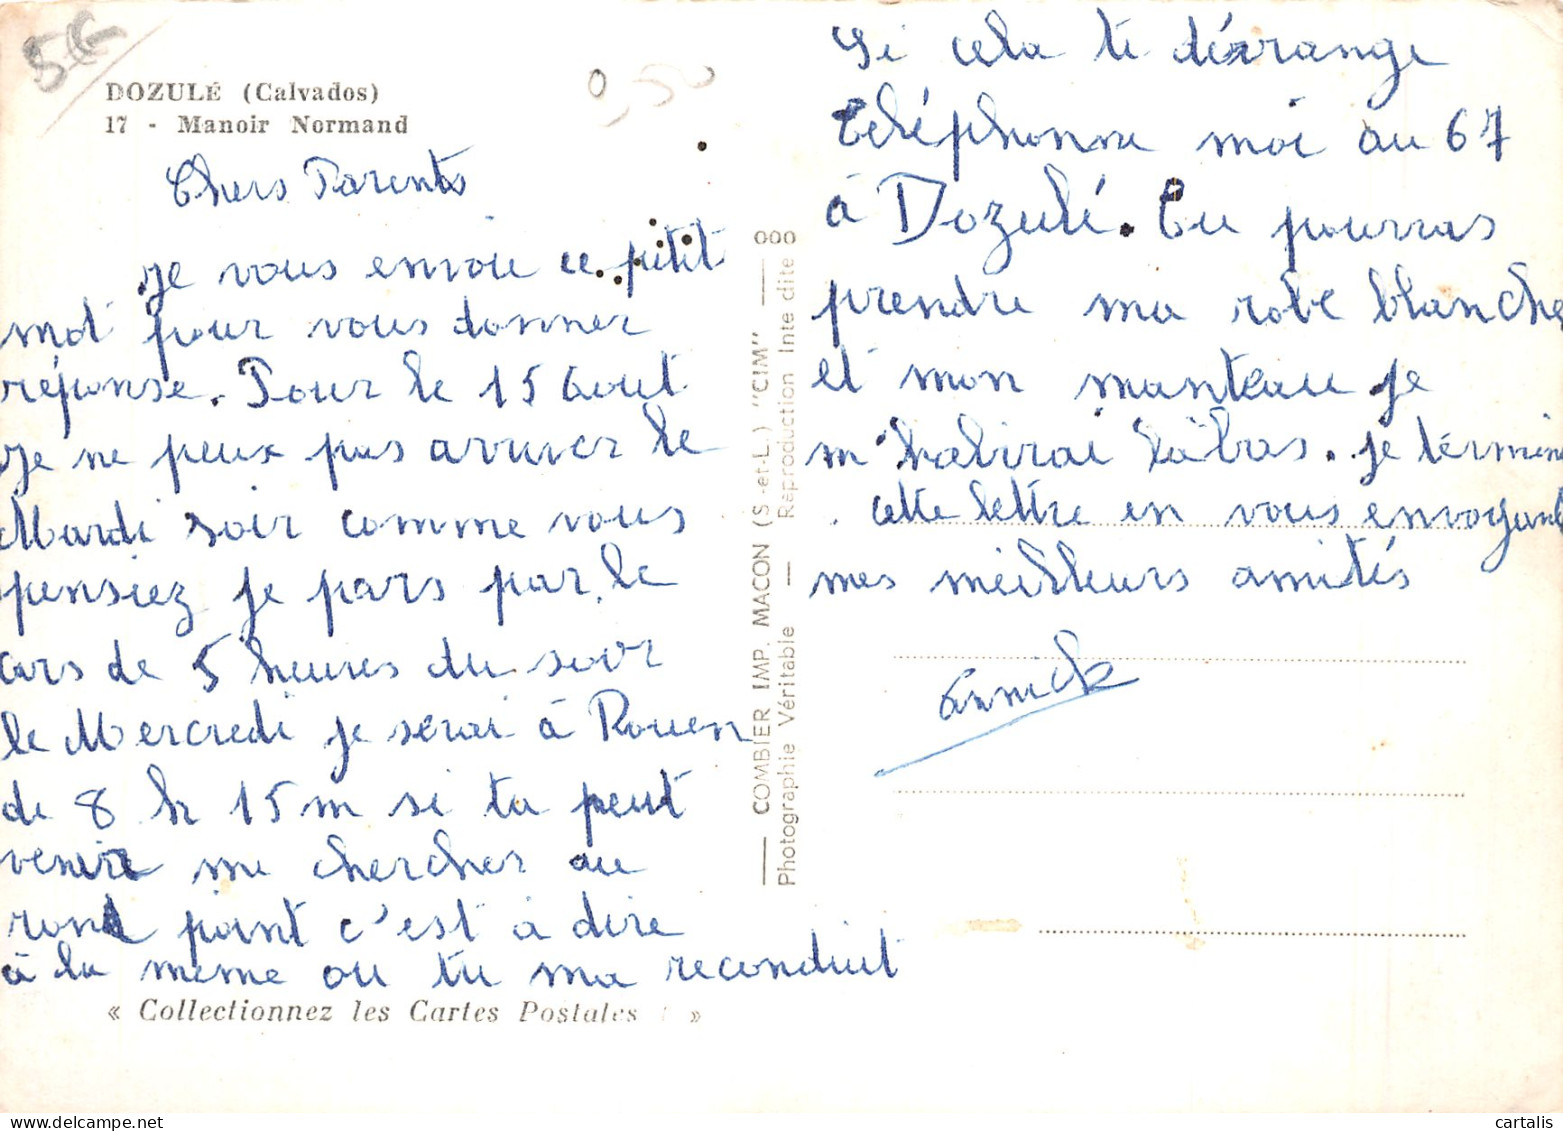 5€
0,50
DOZULÉ (Calvados)
17 - Manoir Normand
Chers Parents
je vous envoie ce petit
mot pour vous donner
réponse. Pour le 15 Aout
je ne peux pas arriver le
Mardi soir comme vous
pensiez je pars par le
cars de 5 heures du soir
le Mercredi je serai à Rouen
de 8 h 15 m si tu peut
venir me chercher au
rond point c'est à dire
à la meme ou tu ma reconduit
« Collectionnez les Cartes Postales ! »
COMBIER IMP. MACON (S.-et-L.) "CIM"
Photographie Véritable — Reproduction Interdite
Si cela te dérange
téléphonne moi au 67
à Dozulé. Tu pourras
prendre ma robe blanche
et mon manteau je
m'habirai làbas. je términe
cette lettre en vous envoyant
mes meilleurs amités
annick
cartalis